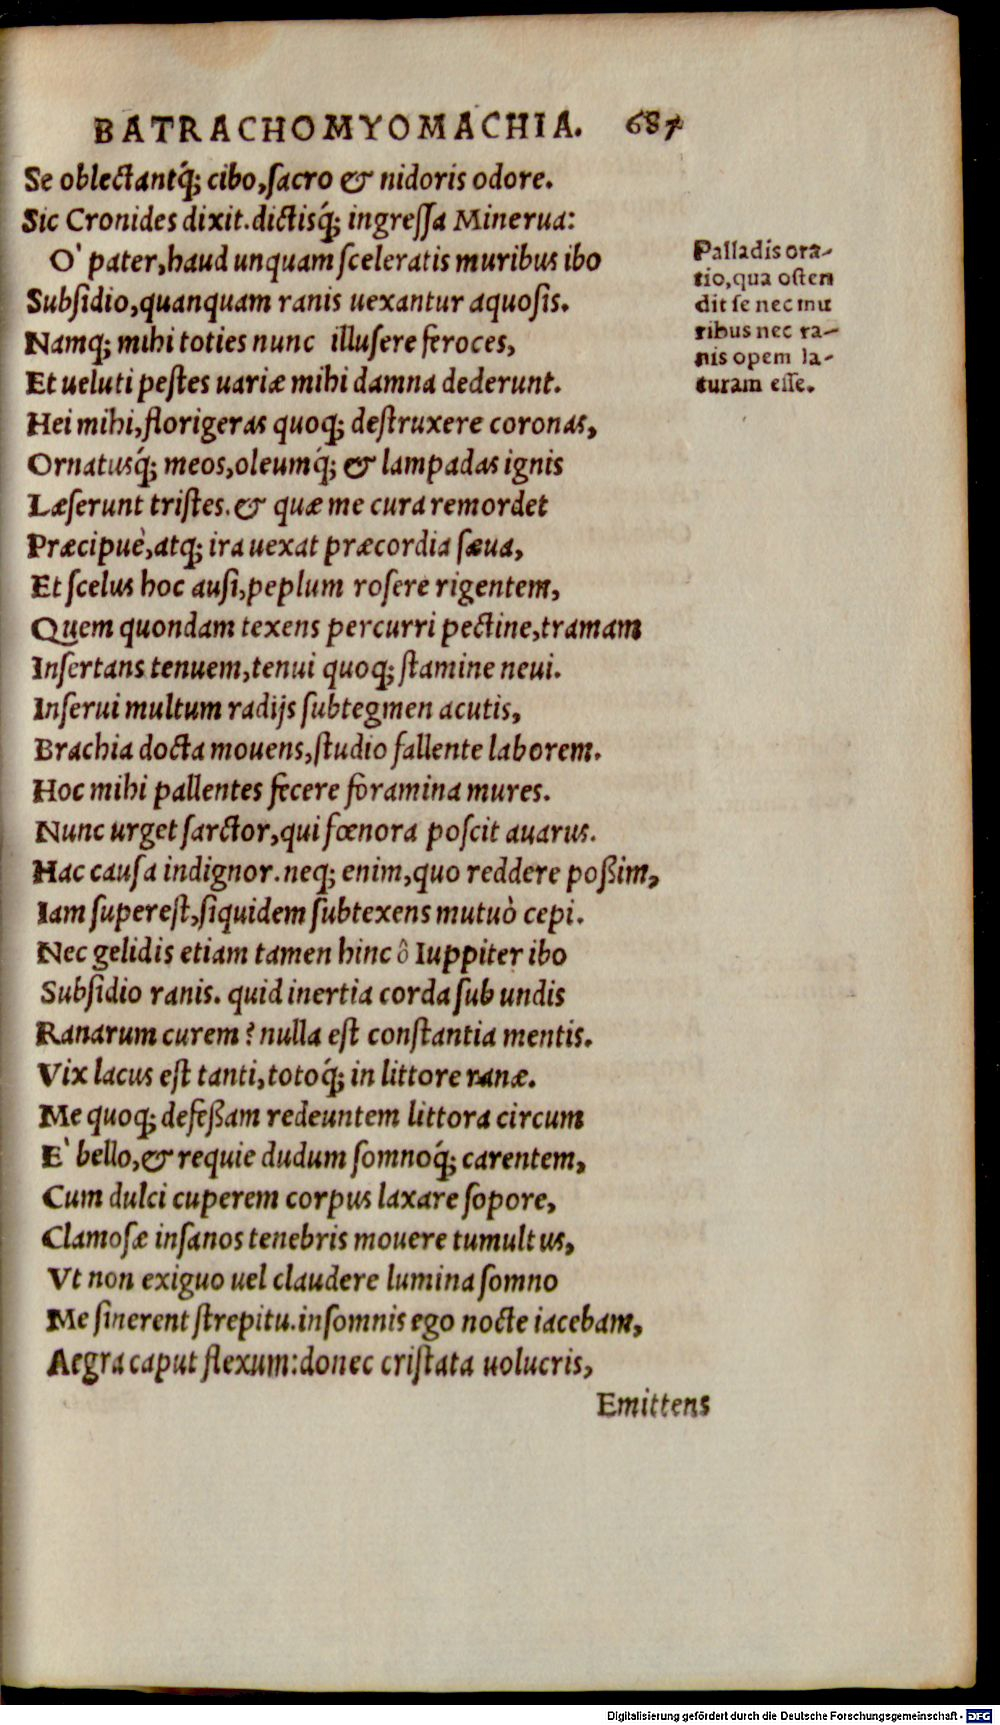 BATRACHOMYOMACHIA. 687
Se oblectantq́; cibo, sacro & nidoris odore.
Sic Cronides dixit. dictisq́; ingressa Minerua:
O` pater, haud unquam sceleratis muribus ibo
Subsidio, quanquam ranis uexantur aquosis.
Namq; mihi toties nunc illusere feroces,
Et ueluti pestes uariæ mihi damna dederunt.
Hei mihi, florigeras quoq; destruxere coronas,
Ornatusq́; meos, oleumq́; & lampadas ignis
Læserunt tristes. & quæ me cura remordet
Præcipuè, atq; ira uexat præcordia sæua,
Et scelus hoc ausi, peplum rosere rigentem,
Quem quondam texens percurri pectine, tramam
Insertans tenuem, tenui quoq; stamine neui.
Inserui multum radijs subtegmen acutis,
Brachia docta mouens, studio fallente laborem.
Hoc mihi pallentes fecere foramina mures.
Nunc urget sarctor, qui fœnora poscit auarus.
Hac causa indignor. neq; enim, quo reddere poßim,
Iam superest, siquidem subtexens mutuò cepi.
Nec gelidis etiam tamen hinc ô Iuppiter ibo
Subsidio ranis. quid inertia corda sub undis
Ranarum curem? nulla est constantia mentis.
Vix lacus est tanti, totoq́; in littore ranæ.
Me quoq; defeßam redeuntem littora circum
E` bello, & requie dudum somnoq́; carentem,
Cum dulci cuperem corpus laxare sopore,
Clamosæ insanos tenebris mouere tumultus,
Vt non exiguo uel claudere lumina somno
Me sinerent strepitu. insomnis ego nocte iacebam,
Aegra caput flexum: donec cristata uolucris,
Emittens
Palladis ora-
tio, qua osten
dit se nec mu
ribus nec ra-
nis opem la-
turam esse.
Digitalisierung gefördert durch die Deutsche Forschungsgemeinschaft - DFG